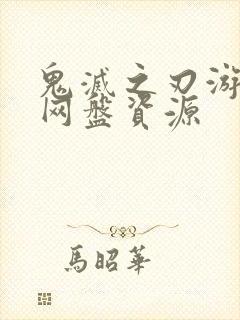 鬼滅之刃游
网盤資源
馬昭華